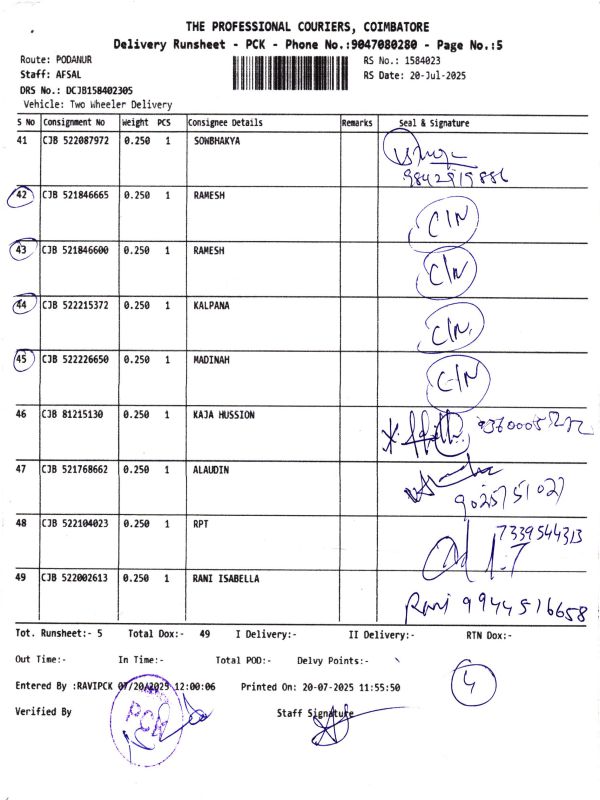 THE PROFESSIONAL COURIERS, COIMBATORE
Delivery Runsheet - PCK - Phone No.:9047080280 - Page No.:5
Route: PODANUR RS No.: 1584023
Staff: AFSAL RS Date: 20-Jul-2025
DRS No.: DCJB158402305
Vehicle: Two Wheeler Delivery
S No Consignment No Weight PCS Consignee Details Remarks Seal & Signature
41 CJB 522087972 0.250 1 SOWBHAKYA
9842919886
42 CJB 521846665 0.250 1 RAMESH C/N
43 CJB 521846600 0.250 1 RAMESH C/N
44 CJB 522215372 0.250 1 KALPANA C/N
45 CJB 522226650 0.250 1 MADINAH C/N
46 CJB 81215130 0.250 1 KAJA HUSSION
47 CJB 521768662 0.250 1 ALAUDIN
9025751027
48 CJB 522104023 0.250 1 RPT 7339544313
49 CJB 522002613 0.250 1 RANI ISABELLA Rani 9944516658
Tot. Runsheet:- 5 Total Dox:- 49 I Delivery:- II Delivery:- RTN Dox:-
Out Time:- In Time:- Total POD:- Delvy Points:-
4
Entered By :RAVIPCK 07/20/2025 12:00:06 Printed On: 20-07-2025 11:55:50
Verified By Staff Signature
PCK